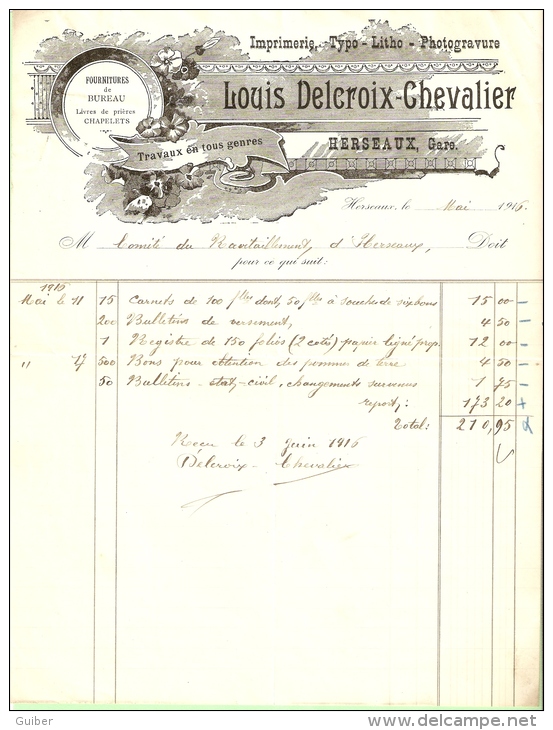 Imprimerie, - Typo - Litho - Photogravure
FOURNITURES
de
BUREAU
Livres de prières
CHAPELETS
Louis Delcroix-Chevalier
Travaux en tous genres
HERSEAUX, Gare.
Herseaux, le Mai 1916
M Comité du Ravitaillement, d'Herseaux, Doit
pour ce qui suit:
1916
Mai le 11 15 Carnets de 100 flles dont 50 flles à souches de six bons 15 00 -
200 Bulletins de versement, 4 50 -
1 Registre de 150 folios (2 cotés) papier ligné prop. 12 00 -
" 17 500 Bons pour obtention des pommes de terre 4 50 -
50 Bulletins - état-civil, changements survenus 1 75 -
report: 173 20 +
Total: 210,95
Recu le 3 Juin 1916
Delcroix-Chevalier
Guiber
www.delcampe.net